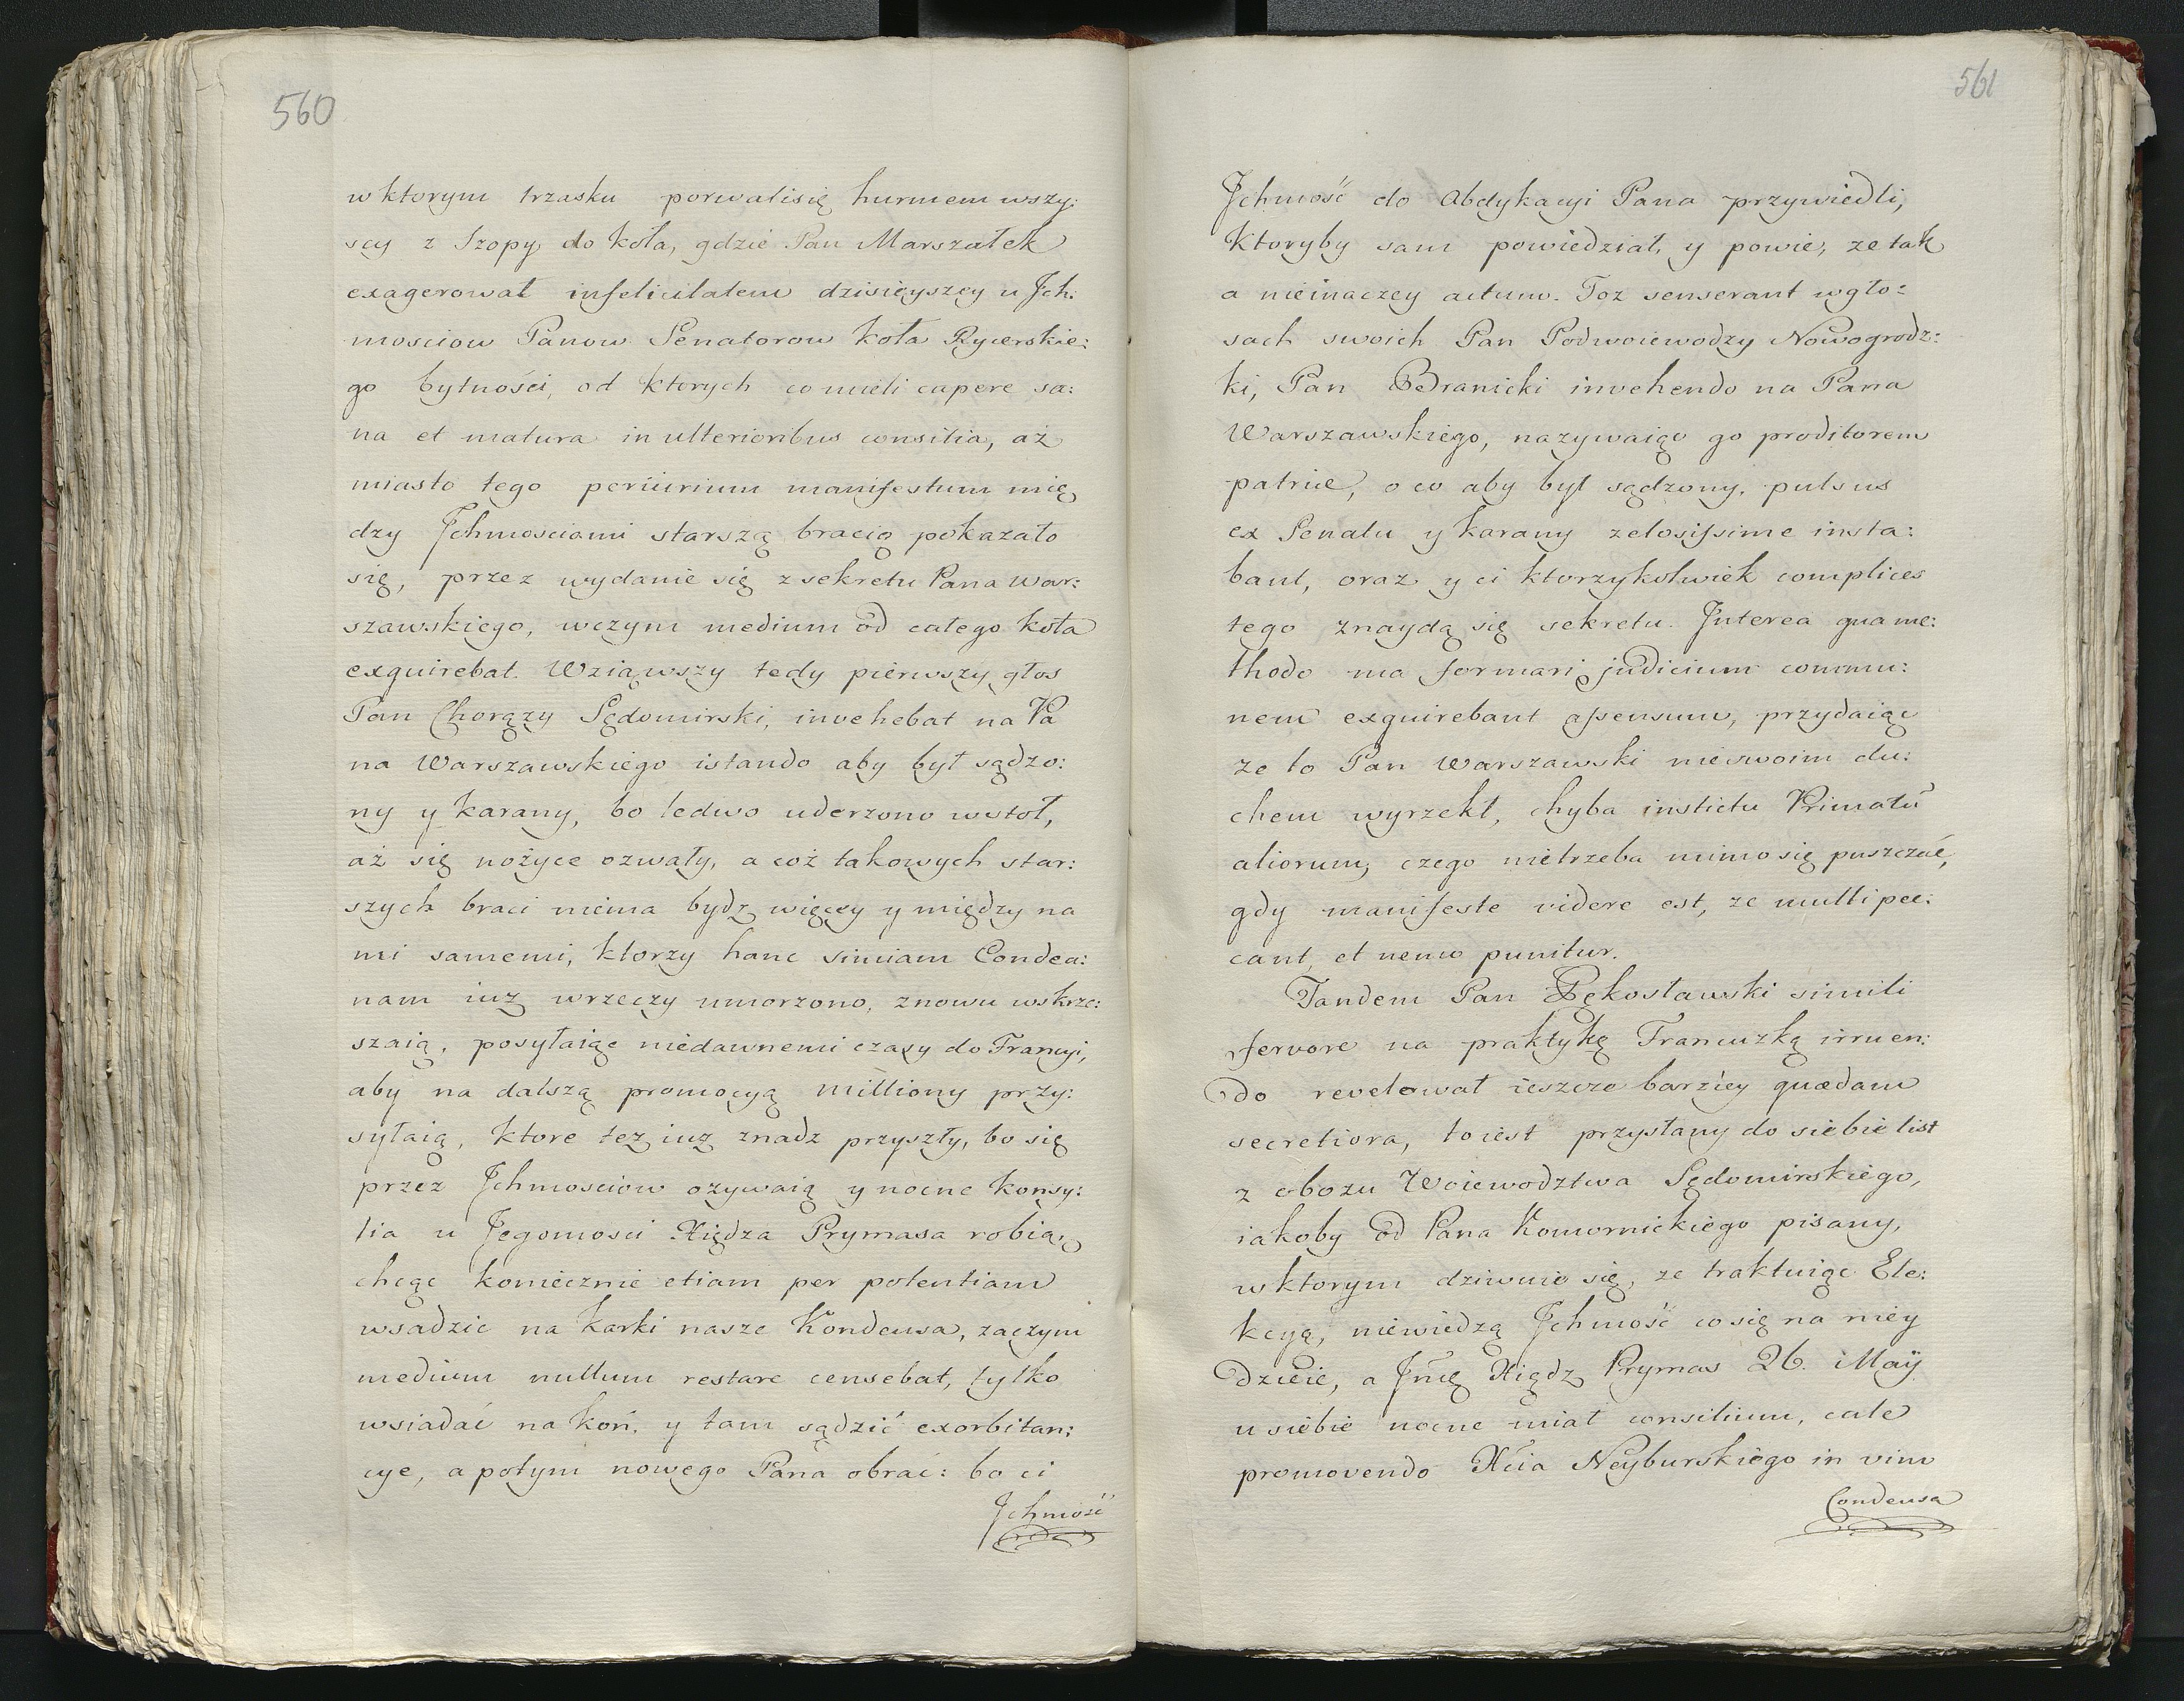 560
w ktorym trzasku porwalisię hurmem wszy:
scy z Szopy do koła, gdzie Pan Marszałek
exagerował infelicitatem dzisieyszey u Jch:
mosciow Panow Senatorow koła Rycerskie:
go bytności, od ktorych co mieli capere sa:
na et matura in ulterioribus consilia, aż
miasto tego periurium manifestum mię
dzy Jchmosciami starszą bracią pokazało
się, przez wydanie się z sekretu Pana War:
szawskiego, wczym medium od całego koła
exquirebat. Wziąwszy tedy pierwszy głos
Pan Chorązy Sędomirski, invehebat na Pa
na Warszawskiego istando aby był sądzo:
ny y karany, bo ledwo uderzono wstoł,
aż się nożyce ozwały, a coż takowych star:
szych braci niema bydz więcey y między na
mi samemi, ktorzy hanc simiam Condea:
nam iuz wrzeczy umorzono, znowu wskrze:
szaią, posyłaiąc niedawnemi czasy do Francyi,
aby na dalszą promocyą milliony przy:
syłaią, ktore tez iuz znadz przyszły, bo się
przez Jchmosciow ozywaią y nocne konsy:
lia u Jegomosci Xiędza Prymasa robią,
chcąc koniecznie etiam per potentiam
wsadzic na karki nasze Kondeusa, zaczym
medium nullum restare censebat, tylko
wsiadać na koń, y tam sądzić exorbitan:
cye, a potym nowego Pana obrać: bo ci
Jchmość
561
Jchmość do Abdykacyi Pana przywiedli,
Ktoryby sam powiedział, y powie, ze tak
a nieinaczey actum. Toz senserant wgło:
sach swoich Pan Podwoiewodzy Nowogrodz:
ki, Pan Branicki invehendo na Pana
Warszawskiego, nazywaiąc go proditorem
patriæ, o co aby był sądzony, pulsus
ex Senatu y karany zelosissime insta:
bant, oraz y ci ktorzykolwiek complices
tego znaydą się sekretu. Interea qua me:
thodo ma formari judicium commu:
nem exquirebant assensum, przydaiąc
ze to Pan Warszawski nieswoim du:
chem wyrzekł, chyba instictu Primatû
aliorum, czego nietrzeba mimo się puszczać,
gdy manifeste videre est, ze multi pec:
cant, et nemo punitur.
Tandem Pan Pękosławski simili
fervore na praktykę Francuzką irruen:
do revelował ieszcze barziey quædam
secretiora, toiest przysłany do siebie list
z obozu Woiewodztwa Sędomirskiego,
iakoby od Pana Komornickiego pisany,
w ktorym dziwuie się, ze traktuiąc Ele:
kcyą, niewiedzą Jchmość co się na niey
dzieie, a Jm̃ę Xiądz Prymas 26. Maÿ
u siebie nocne miał consilium, cale
promovendo Xcia Neyburskiego in vim
Condeusa